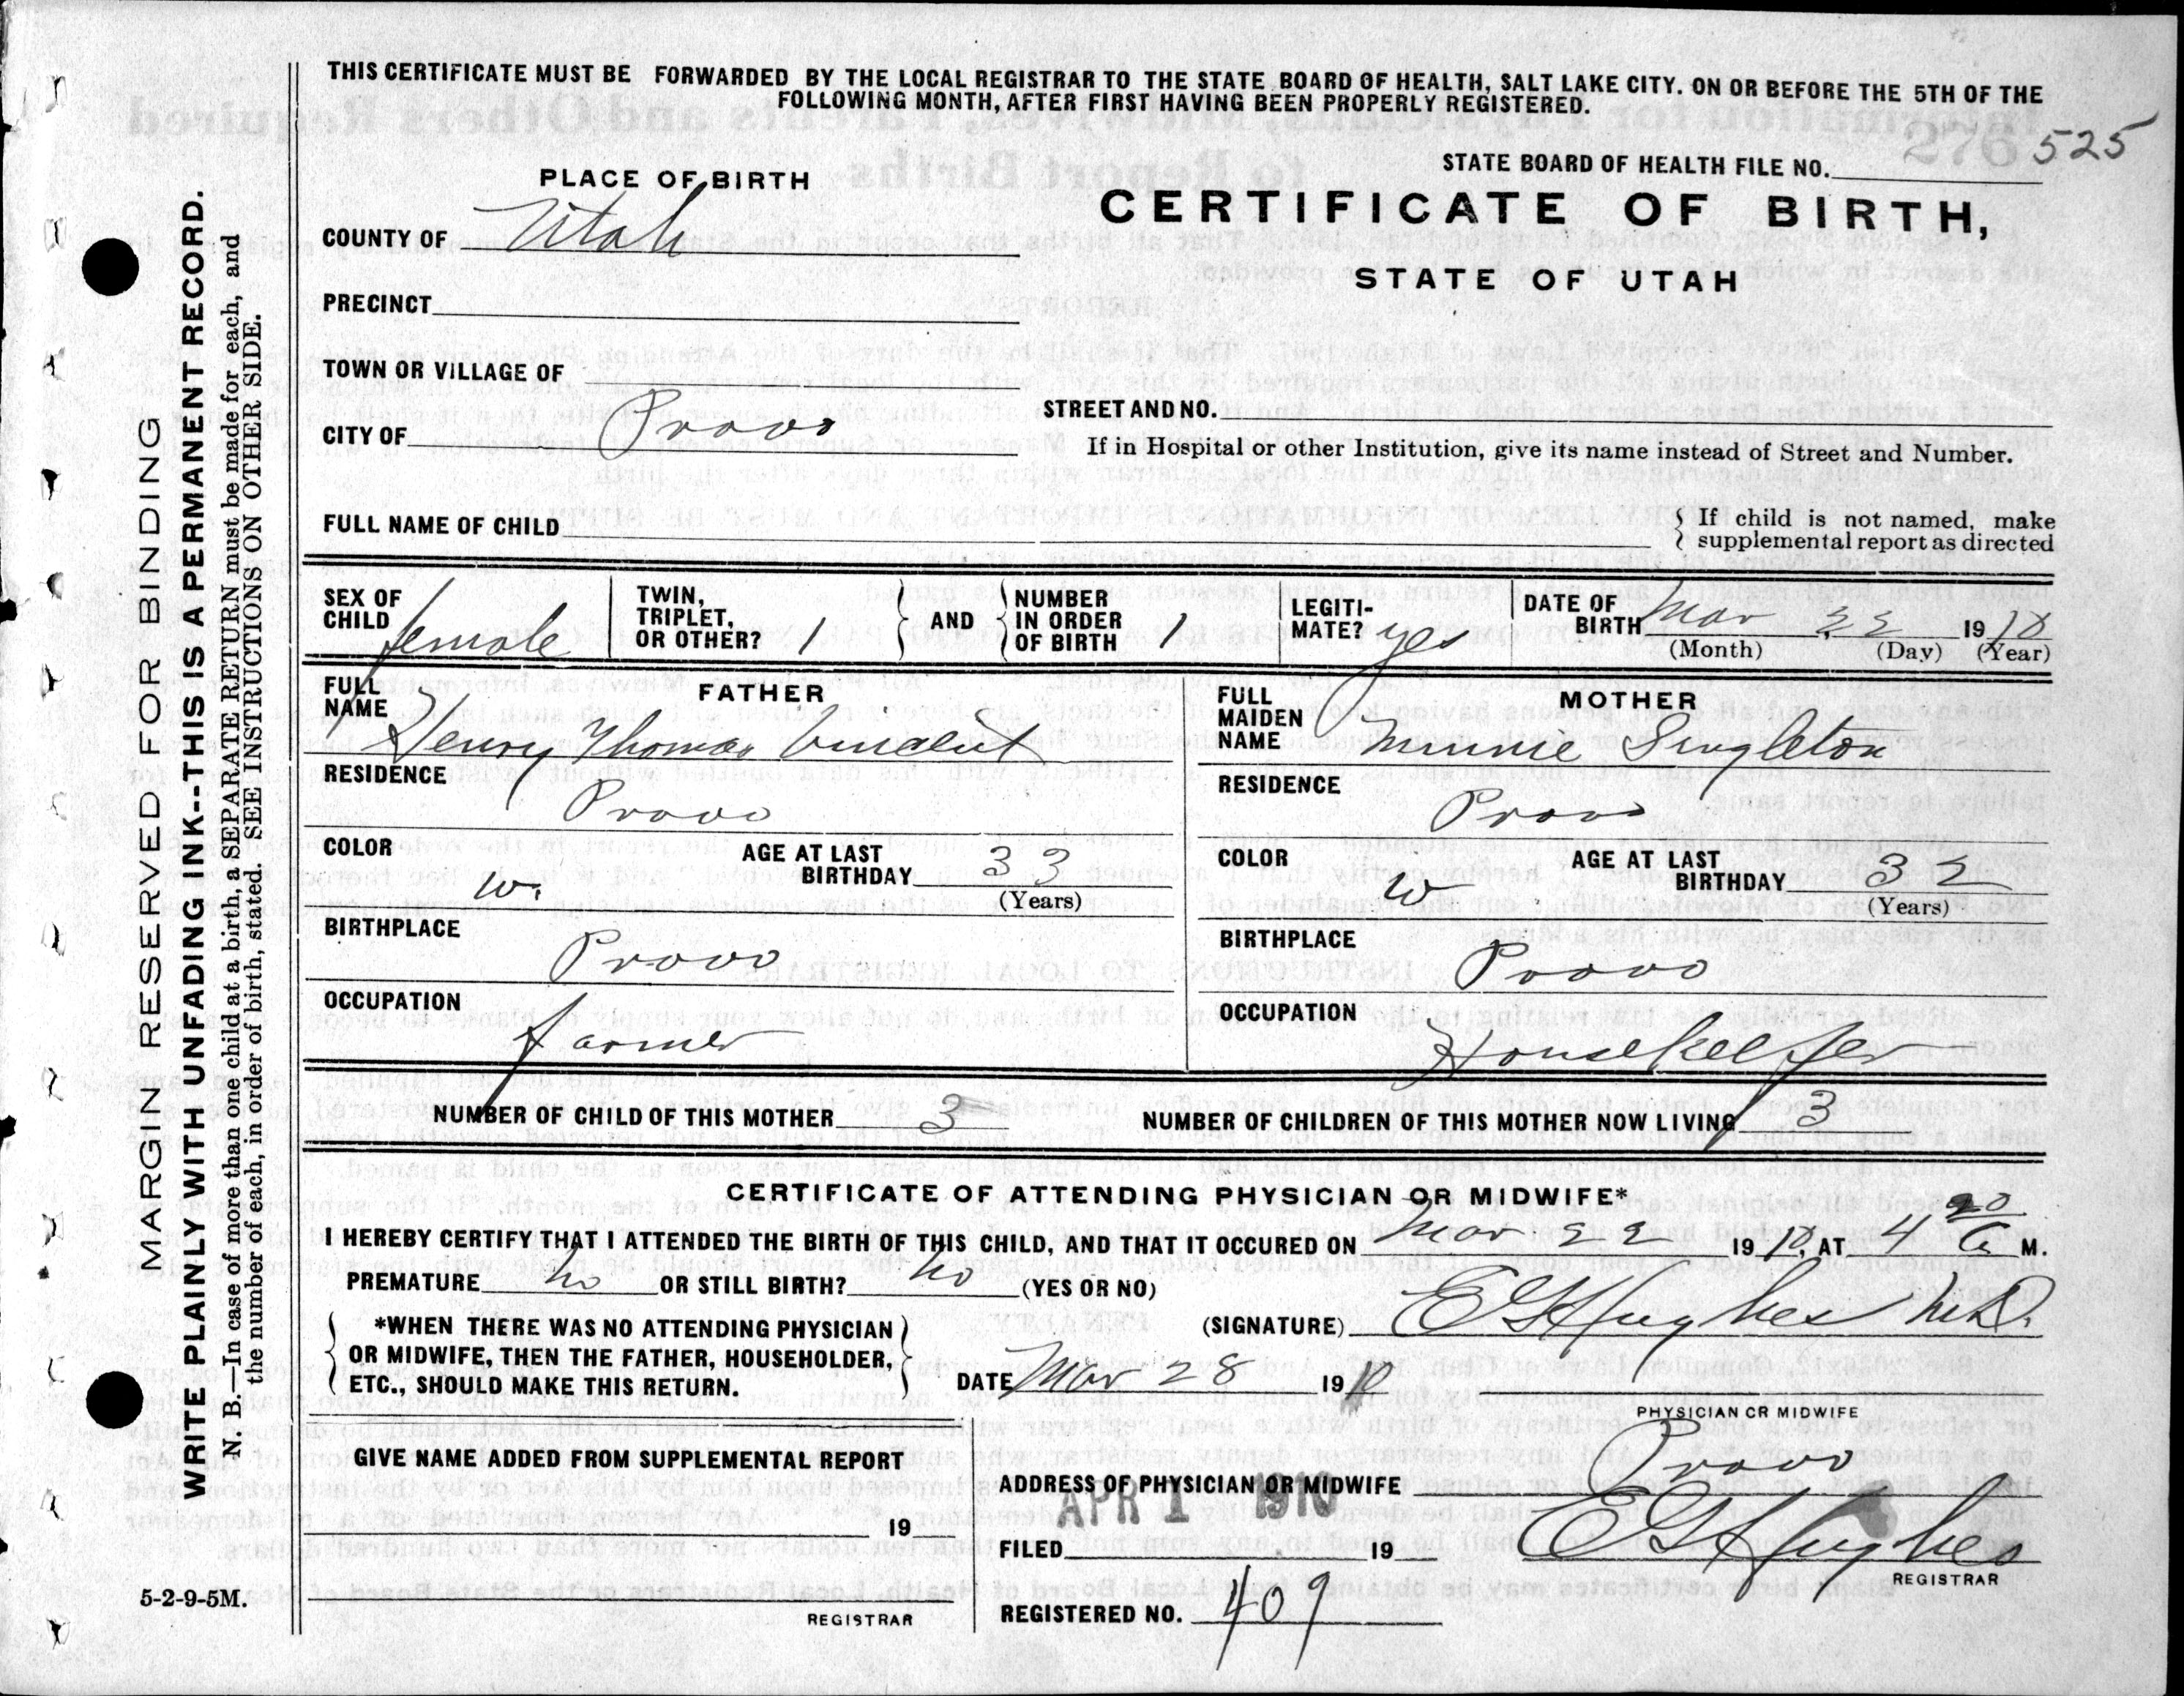 THIS CERTIFICATE MUST BE FORWARDED BY THE LOCAL REGISTRAR TO THE STATE BOARD OF HEALTH, SALT LAKE CITY. ON OR BEFORE THE 5TH OF THE
FOLLOWING MONTH, AFTER FIRST HAVING BEEN PROPERLY REGISTERED.
276 525
STATE BOARD OF HEALTH FILE NO.
PLACE OF BIRTH
CERTIFICATE OF BIRTH,
STATE OF UTAH
COUNTY OF Utah
PRECINCT
TOWN OR VILLAGE OF
CITY OF Provo
STREET AND NO.
If in Hospital or other Institution, give its name instead of Street and Number.
FULL NAME OF CHILD
If child is not named, make
supplemental report as directed
SEX OF
CHILD female
TWIN,
TRIPLET,
OR OTHER? 1
AND
NUMBER
IN ORDER
OF BIRTH 1
LEGITI-
MATE? yes
DATE OF
BIRTH Mar 22 1910
(Month) (Day) (Year)
FATHER
FULL
NAME Henry Thomas Vincent
RESIDENCE
Provo
COLOR
w.
AGE AT LAST
BIRTHDAY 33
(Years)
BIRTHPLACE
Provo
OCCUPATION
farmer
MOTHER
FULL
MAIDEN
NAME Minnie Singleton
RESIDENCE
Provo
COLOR
w
AGE AT LAST
BIRTHDAY 32
(Years)
BIRTHPLACE
Provo
OCCUPATION
Housekeeper
NUMBER OF CHILD OF THIS MOTHER 3
NUMBER OF CHILDREN OF THIS MOTHER NOW LIVING 3
CERTIFICATE OF ATTENDING PHYSICIAN OR MIDWIFE*
I HEREBY CERTIFY THAT I ATTENDED THE BIRTH OF THIS CHILD, AND THAT IT OCCURED ON Mar 22 1910, AT 4 20 a M.
PREMATURE no OR STILL BIRTH? no (YES OR NO)
*WHEN THERE WAS NO ATTENDING PHYSICIAN
OR MIDWIFE, THEN THE FATHER, HOUSEHOLDER,
ETC., SHOULD MAKE THIS RETURN.
(SIGNATURE) E G Hughes M.D.
DATE Mar 28 1910
PHYSICIAN OR MIDWIFE
GIVE NAME ADDED FROM SUPPLEMENTAL REPORT
19
REGISTRAR
ADDRESS OF PHYSICIAN OR MIDWIFE Provo
APR 1 1910
FILED 19
E G Hughes
REGISTRAR
REGISTERED NO. 409
5-2-9-5M.
MARGIN RESERVED FOR BINDING
WRITE PLAINLY WITH UNFADING INK--THIS IS A PERMANENT RECORD.
N. B.—In case of more than one child at a birth, a SEPARATE RETURN must be made for each, and
the number of each, in order of birth, stated. SEE INSTRUCTIONS ON OTHER SIDE.